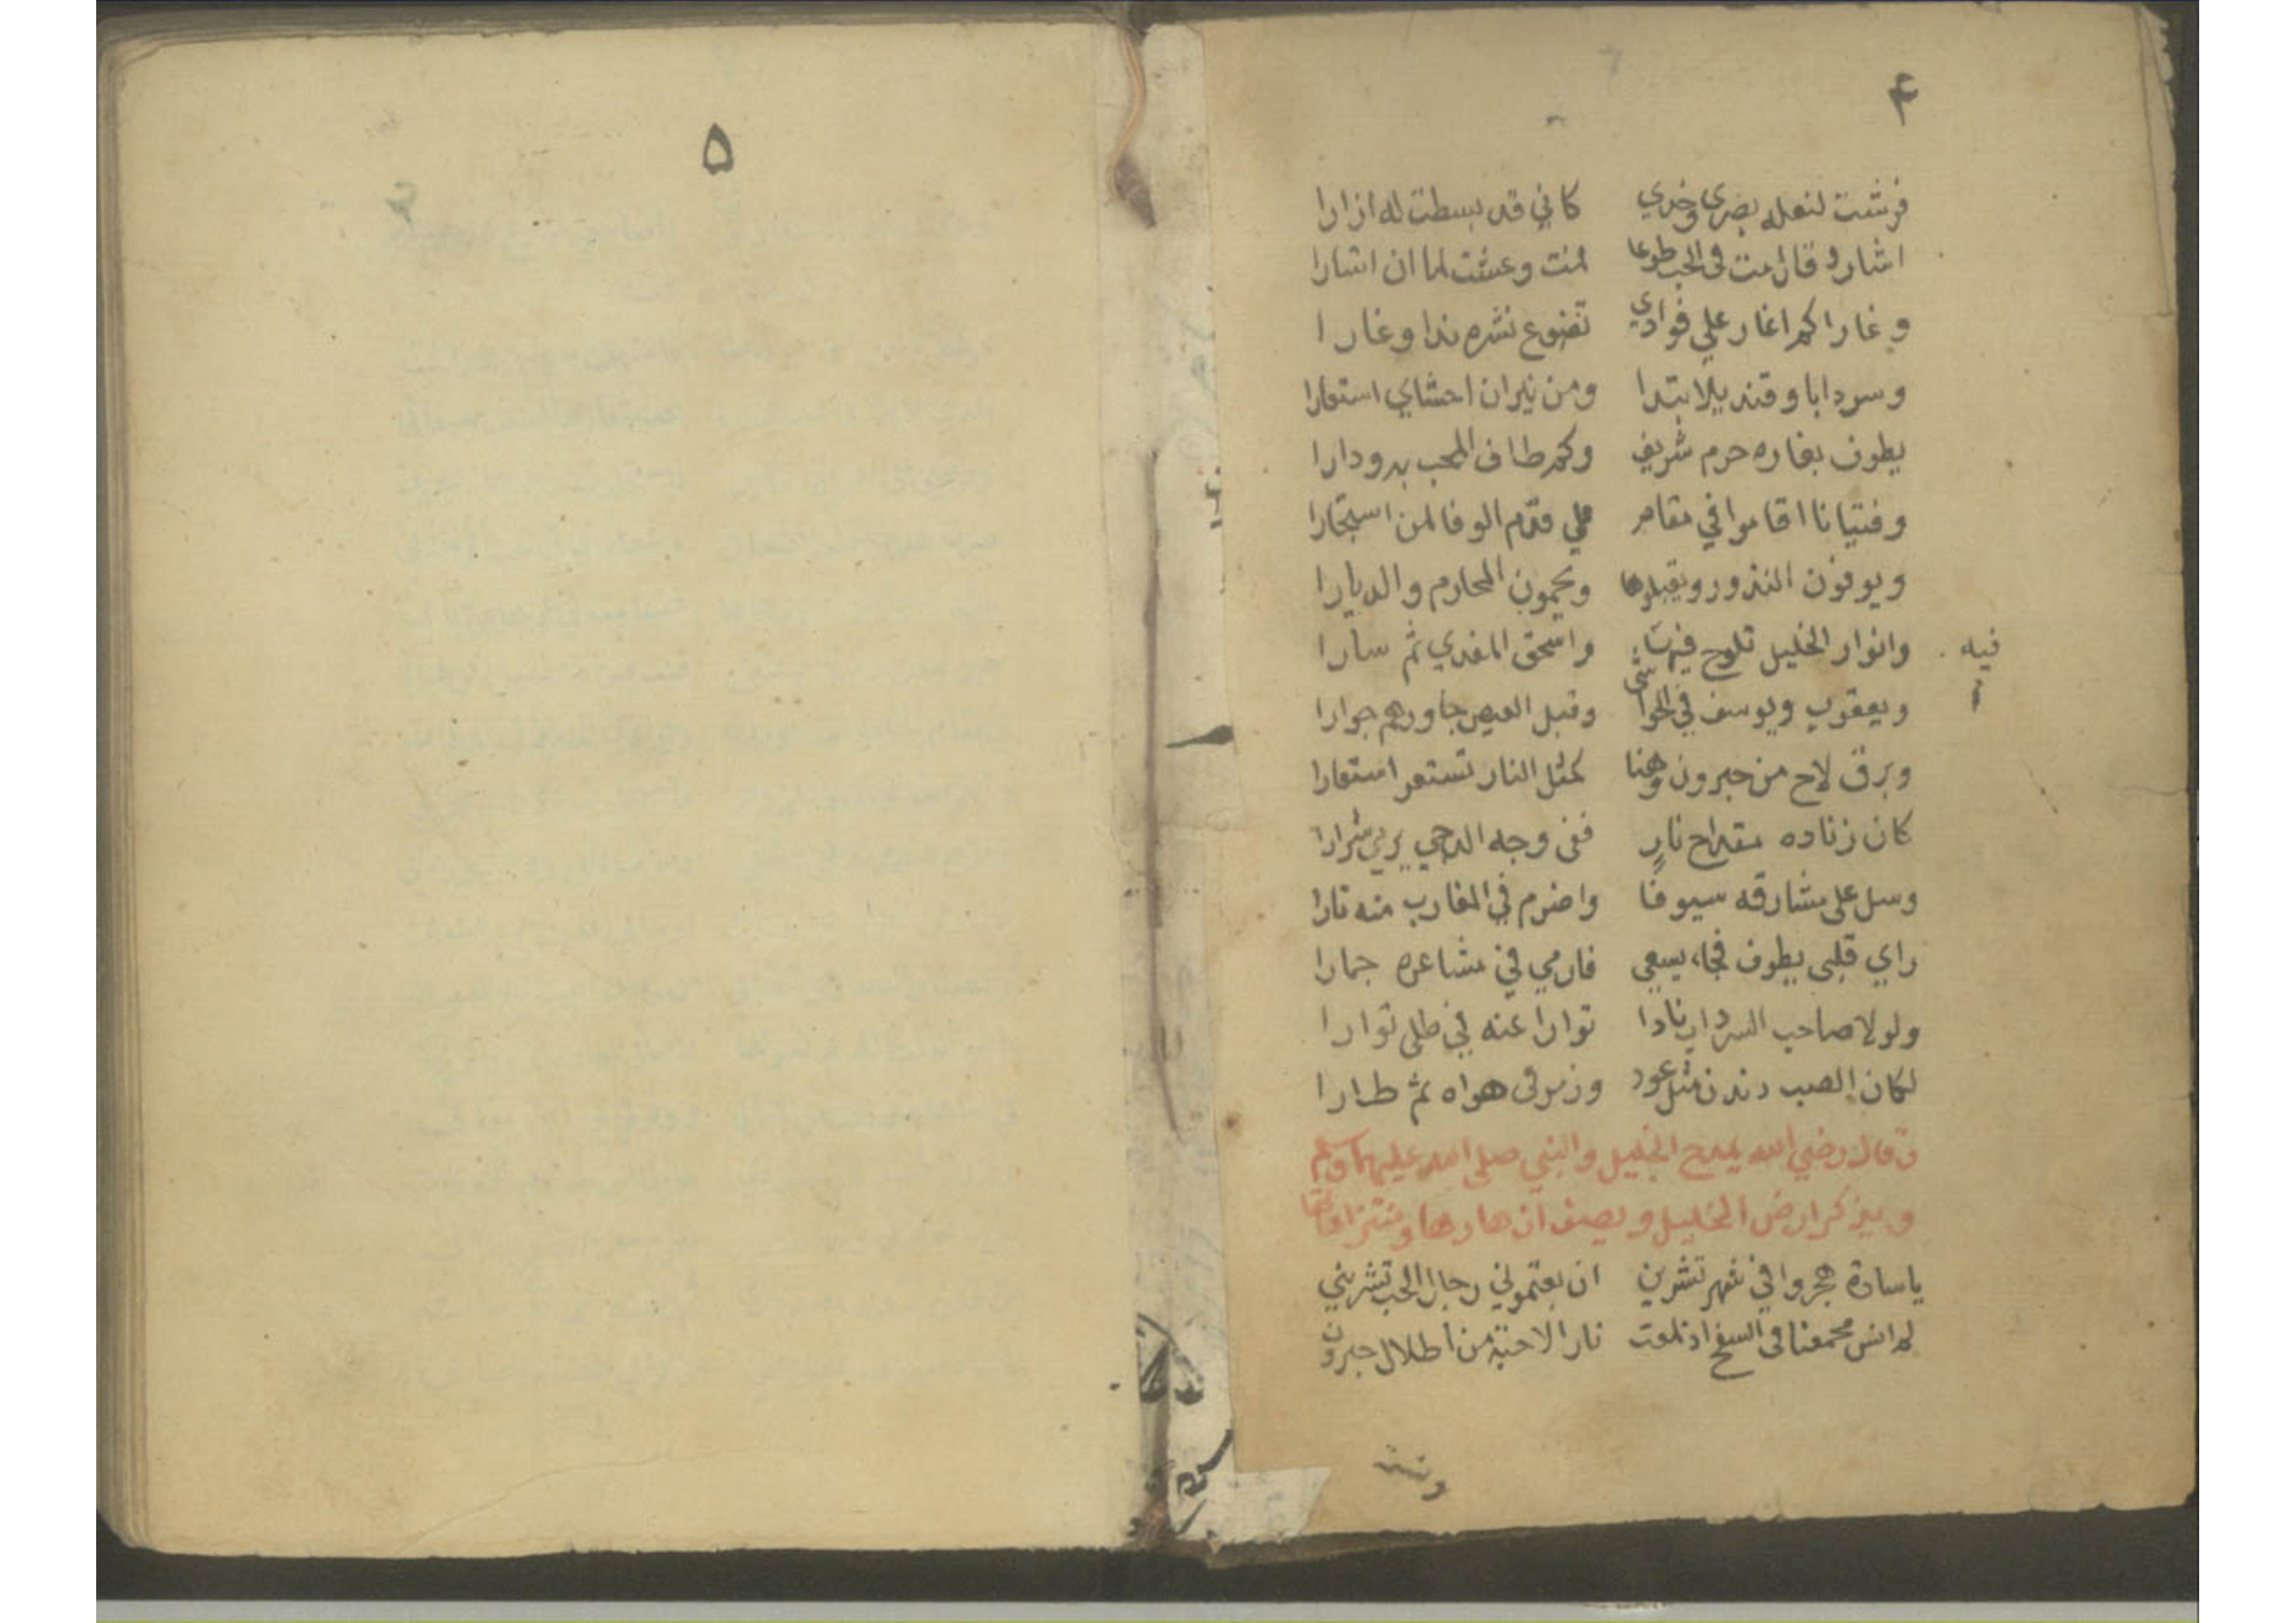 ۴
فرشت لنعله بصري وخدي كاني قد بسطت له ازارا
اشار وقال مت في الحب طوعا فمت وعشت لما ان اشارا
و غارا كم اغار علي فوادي تضوع نشره ندا وغارا
و سردابا و قنديلا بتدا ومن نيران احشاي استعارا
يطوف بغاره حرم شريف وكم طاف المحب به ودارا
و فتيانا اقاموا في مقام علي قدم الوفا لمن استجارا
ويوفون النذور ويقبلوها ويحمون المحارم والديارا
وانوار الخليل تلوح فيها واسحق المفدي ثم سارا
فيه
ويعقوب ويوسف في الحواشي وقبل العيص جاورهم جوارا
وبرق لاح من حبرون وهنا كمثل النار تستعر استعارا
كان زناده مقداح نارٍ ففي وجه الدجي يرمي شرارا
وسل علي مشارقه سيوفا واضرم في المغارب منه نارا
راي قلبي يطوف فجاء يسعي فارمي في مشاعره جمارا
ولولا صاحب السرداب نادا توارا عنه في ظلي توارا
لكان الصب دندن مثل عود وزمر في هواه ثم طارا
وقال رضي الله يمدح الخليل والنبي صلي الله عليهما وسلم
ويذكر ارض الخليل ويصف انهارها ومنتزاهاتها
ياسادة هجروا في شهر تشرين ان بعتموني رجال الحب تشريني
لم انس مجمعنا في السفح اذ لمعت نار الاحبة من اطلال حبرون
۵